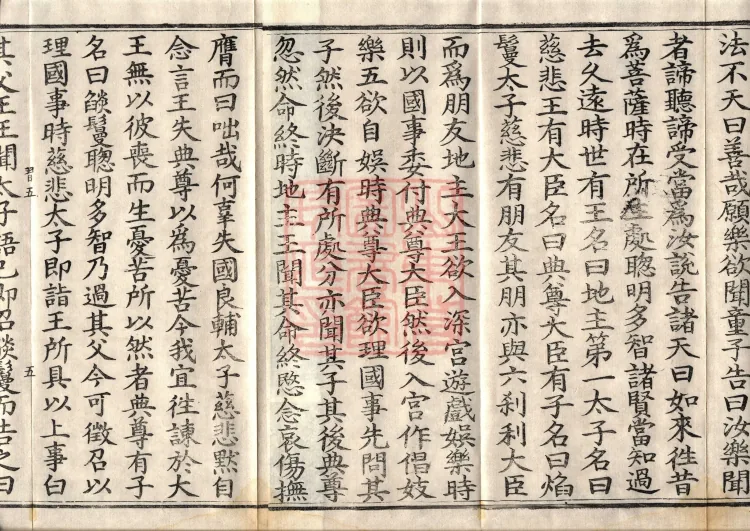 法不天曰善哉願樂欲聞童子告曰汝樂聞
者諦聽諦受當爲汝說告諸天曰如來徃昔
爲菩薩時在所生處聰明多智諸賢當知過
去久遠時世有王名曰地主第一太子名曰
慈悲王有大臣名曰典尊大臣有子名曰焰
鬘太子慈悲有朋友其朋亦與六刹利大臣
而爲朋友地主大王欲入深宮遊戲娛樂時
則以國事委付典尊大臣然後入宮作倡妓
樂五欲自娛時典尊大臣欲理國事先問其
子然後決斷有所處分亦聞其子其後典尊
忽然命終時地主王聞其命終愍念哀傷撫
膺而曰咄哉何辜失國良輔太子慈悲默自
念言王失典尊以爲憂苦今我宜徃諫於大
王無以彼喪而生憂苦所以然者典尊有子
名曰燄鬘聰明多智乃過其父今可徵召以
理國事時慈悲太子即詣王所具以上事白
習五
五
其父王王聞太子語已即召燄鬘而告之曰